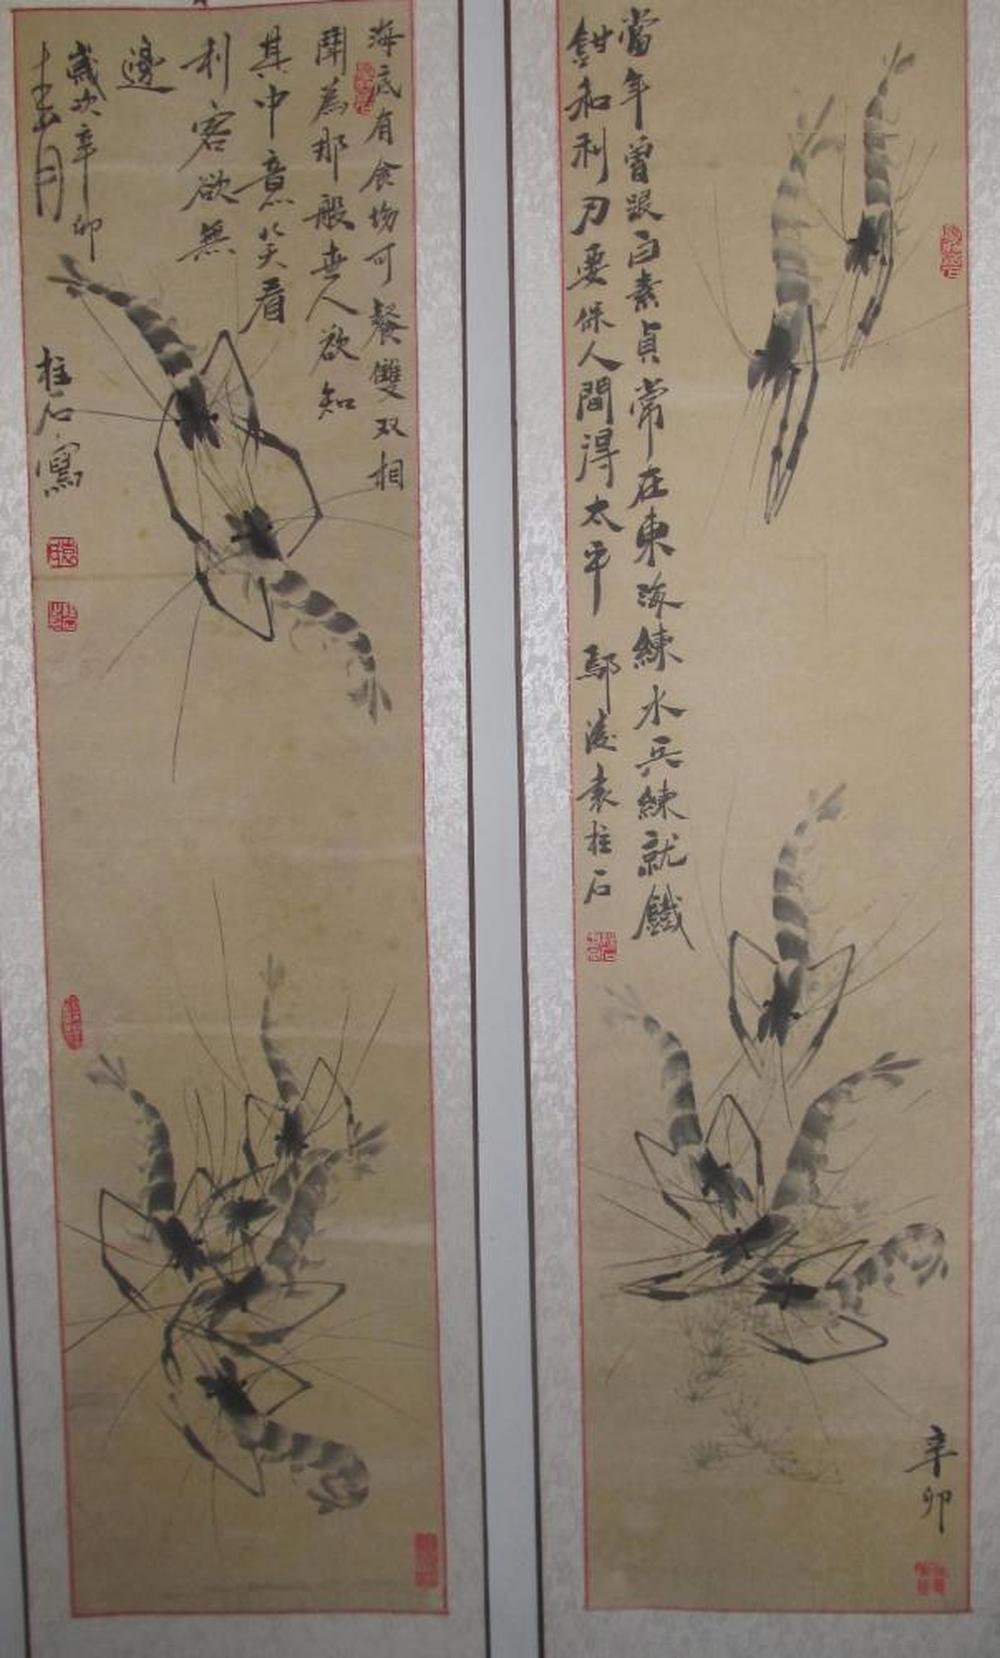 當年曾跟白素貞常在東海練水兵練就鐵
鉗和利刃要保人間得太平 鄢陵袁柱石
辛卯
海底有食物可餐雙双相
鬪為那般世人欲知
其中意笑看
利客欲無
邊
歲次辛卯
春月
柱石寫